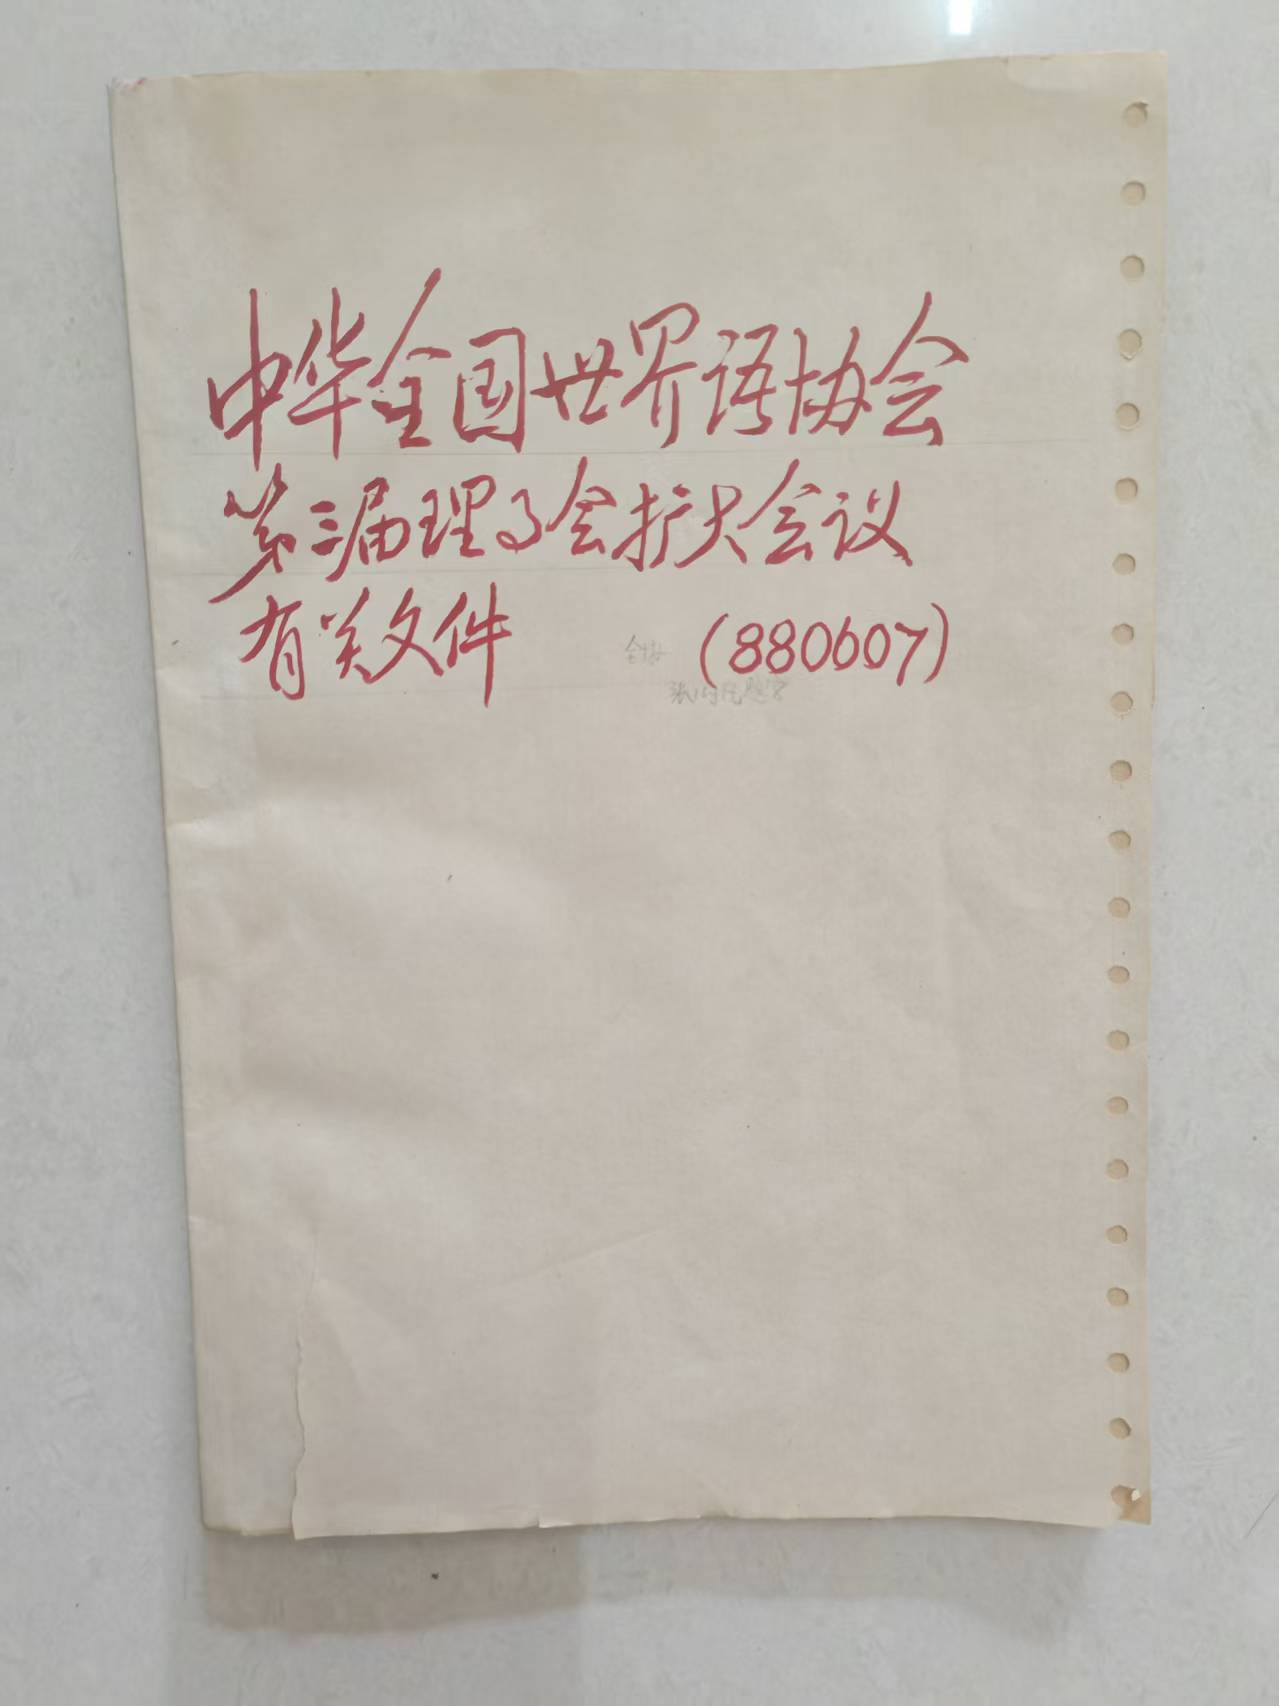 中华全国世界语协会
第三届理事会扩大会议
有关文件 (880607)